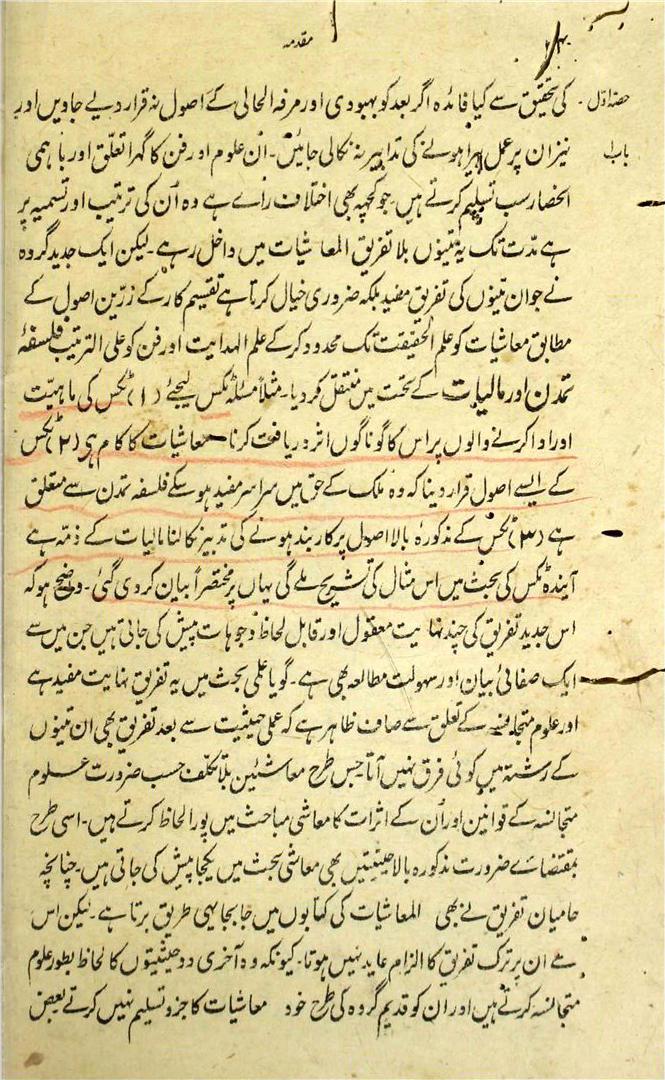 مقدمہ
حصّہ اوّل
باب
کی تحقیق سے کیا فائدہ اگر بعد کو بہبودی اور مرفہ الحالی کے اصول نہ قرار دیے جاویں اور
نیز ان پر عمل پیرا ہونے کی تدابیر نہ نکالی جائیں۔ ان علوم اور فن کا گہرا تعلّق اور باہمی
انحصار سب تسلیم کرتے ہیں جو کچھ بھی اختلاف راے ہے وہ اُن کی ترتیب اور تسمیہ پر
ہے مدّت تک یہ تینوں بلا تفریق المعاشیات میں داخل رہے۔ لیکن ایک جدید گروہ
نے جو ان تینوں کی تفریق مفید بلکہ ضروری خیال کرتا ہے تقسیم کار کے زرّین اصول کے
مطابق معاشیات کو علم الحقیقت تک محدود کرکے علم الہدایت اور فن کو علی الترتیب فلسفۂ
تمدن اور مالیات کے تحت میں منتقل کردیا۔ مثلاً مسئلہ ٹکس لیجئے (۱) ٹکس کی ماہیّت
اور ادا کرنے والوں پر اس کا گوناگوں اثر دریافت کرنا معاشیات کا کام ہی (۲) ٹکس
کے ایسے اصول قرار دینا کہ وہ ملک کے حق میں سراسر مفید ہوسکے فلسفہ تمدن سے متعلق
ہے (۳) ٹکس کے مذکورہ بالا اصول پر کاربند ہونے کی تدبیر نکالنا مالیات کے ذمّہ ہے
آیندہ ٹکس کی بحث میں اس مثال کی تشریح ملے گی یہاں پر مختصراً بیان کردی گئی۔ واضح ہو کہ
اس جدید تفریق کی چند نہایت معقول اور قابل لحاظ وجوہات پیش کی جاتی ہیں جن میں سے
ایک صفائی بیان اور سہولت مطالعہ بھی ہے۔ گویا علمی بحث میں یہ تفریق نہایت مفید ہے
اور علوم متجانسہ کے تعلق سے صاف ظاہر ہے کہ عملی حیثیت سے بعد تفریق بھی ان تینوں
کے رشتہ میں کوئی فرق نہیں آتا۔ جس طرح معاشئین بلا تکلّف حسب ضرورت علوم
متجانسہ کے قوانین اور اُن کے اثرات کا معاشی مباحث میں پورا لحاظ کرتے ہیں۔ اسی طرح
بمقتضاے ضرورت مذکورہ بالا حیثیتیں بھی معاشی بحث میں یکجا پیش کی جاتی ہیں۔ چنانچہ
حامیان تفریق نے بھی المعاشیات کی کتابوں میں جابجا یہی طریق برتا ہے۔ لیکن اس
سے ان پر ترک تفریق کا الزام عاید نہیں ہوتا۔ کیونکہ وہ آخری دو حیثیتوں کا لحاظ بطور علوم
متجانسہ کرتے ہیں اور ان کو قدیم گروہ کی طرح خود معاشیات کا جزو تسلیم نہیں کرتے بعض